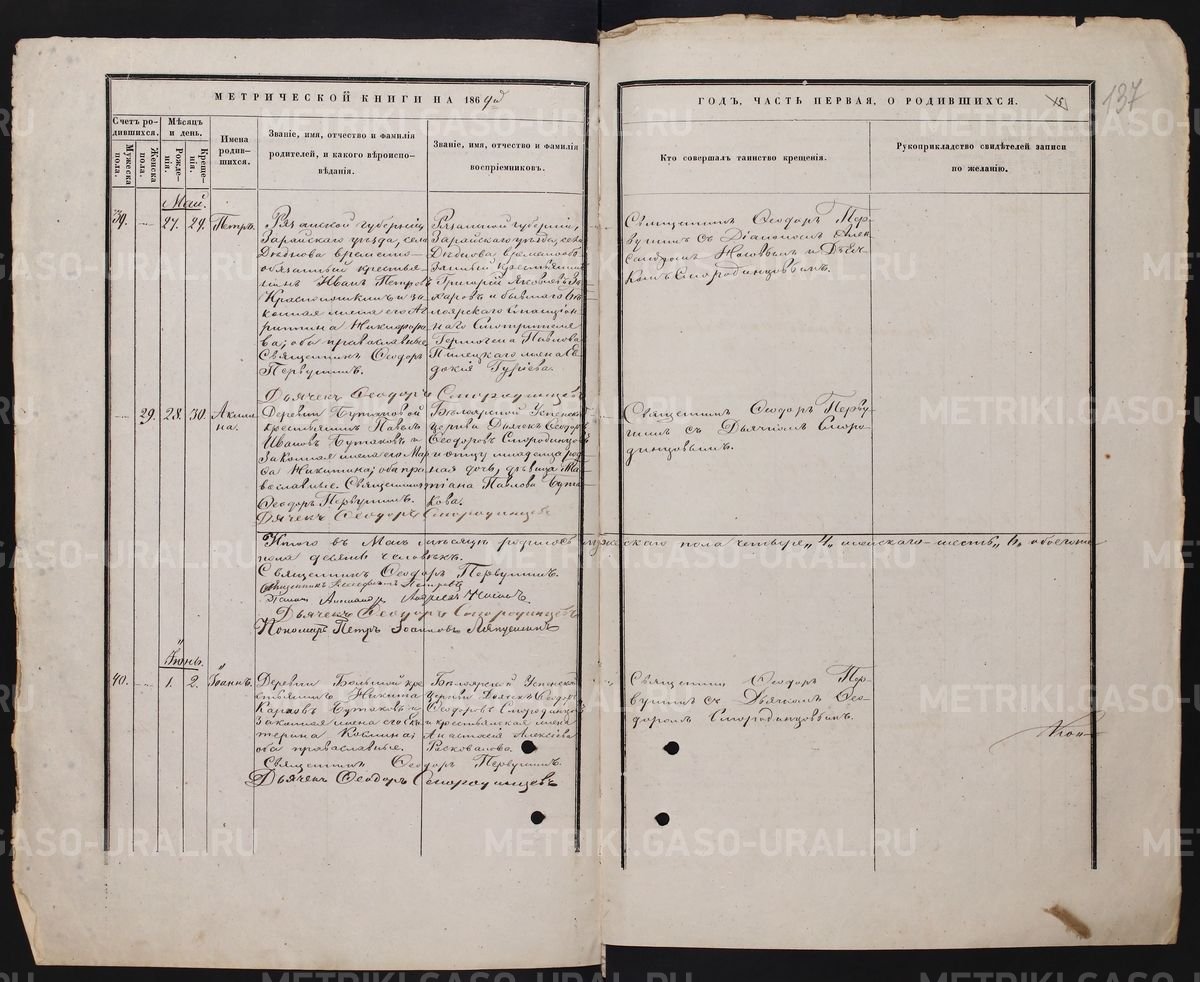 МЕТРИЧЕСКОЙ КНИГИ НА 186
ГОДЪ, ЧАСТЬ ПЕРВАЯ, О РОДИВШИХСЯ.
137
Счетъ ро-
дившихся.
Мужеска
пола.
Женска
пола.
Мѣсяцъ
и день.
Рожде-
нія.
Креще-
нія.
Имена
родив-
шихся.
Званіе, имя, отчество и фамилія
родителей, и какого вѣроиспо-
вѣданія.
Званіе, имя, отчество и фамилія
воспріемниковъ.
Кто совершалъ таинство крещенія.
Рукоприкладство свидѣтелей записи
по желанію.
Май.
39.
27. 29.
Петръ.
Рязанской губерніи,
Зарайскаго уѣзда, села
Дѣднова временно-
обязанный крестья-
нинъ Иванъ Петровъ
и за-
конная жена его Аг-
рипина Никифоро-
ва; оба православные
Священникъ Ѳеодоръ
Первушинъ.
Дьячекъ Ѳеодоръ Смородинцевъ
Рязанской губерніи,
Зарайскаго уѣзда, села
Дѣднова временнообя-
занный крестьянинъ
Григорій Яковлевъ За-
харовъ и бывшаго Бѣ-
лоярскаго Станціон-
наго Смотрителя
Павлова
жена Ев-
докія
Священникъ Ѳеодоръ Пер-
вушинъ съ Діакономъ Алек-
сандромъ и Дьяч-
комъ Смородинцовымъ.
29. 28. 30.
Акили-
на.
Деревни Бутаковой
крестьянинъ Павелъ
Ивановъ Бутаковъ и
законная жена его Мар-
ѳа Никитина; оба пра-
вославные. Священникъ
Ѳеодоръ Первушинъ.
Дьячекъ Ѳеодоръ Смородинцевъ
Бѣлоярской Успенской
церкви Дьячекъ Ѳеодоръ
Ѳеодоровъ Смородинцовъ
и отцу младенца род-
ная дочь, дѣвица Ма-
Павлова Бута-
кова.
Священникъ Ѳеодоръ Перву-
шинъ съ Дьячкомъ Сморо-
динцовымъ.
Итого въ Маѣ мѣсяцѣ родилось мужескаго пола четыре „4„ женскаго-шесть „6„ обоего
пола десять человѣкъ.
Священникъ Ѳеодоръ Первушинъ.
Дьячекъ Ѳеодоръ Смородинцевъ
Пономарь Петръ Іоанновъ Ляпустинъ
Іюнь.
40.
1. 2.
Іоаннъ.
Деревни Большой кре-
стьянинъ Никита
Карповъ Бутаковъ и
законная жена его Ека-
терина Козмина;
оба православные.
Священникъ Ѳеодоръ Первушинъ.
Дьячекъ Ѳеодоръ Смородинцевъ
Бѣлоярской Успенской
церкви Дьячекъ Ѳеодоръ
Ѳеодоровъ Смородинцовъ
и крестьянская жена
Анастасія Алексѣева
Священникъ Ѳеодоръ Пер-
вушинъ съ Дьячкомъ Ѳео-
доромъ Смородинцовымъ.
METRIKI.GASO-URAL.RU